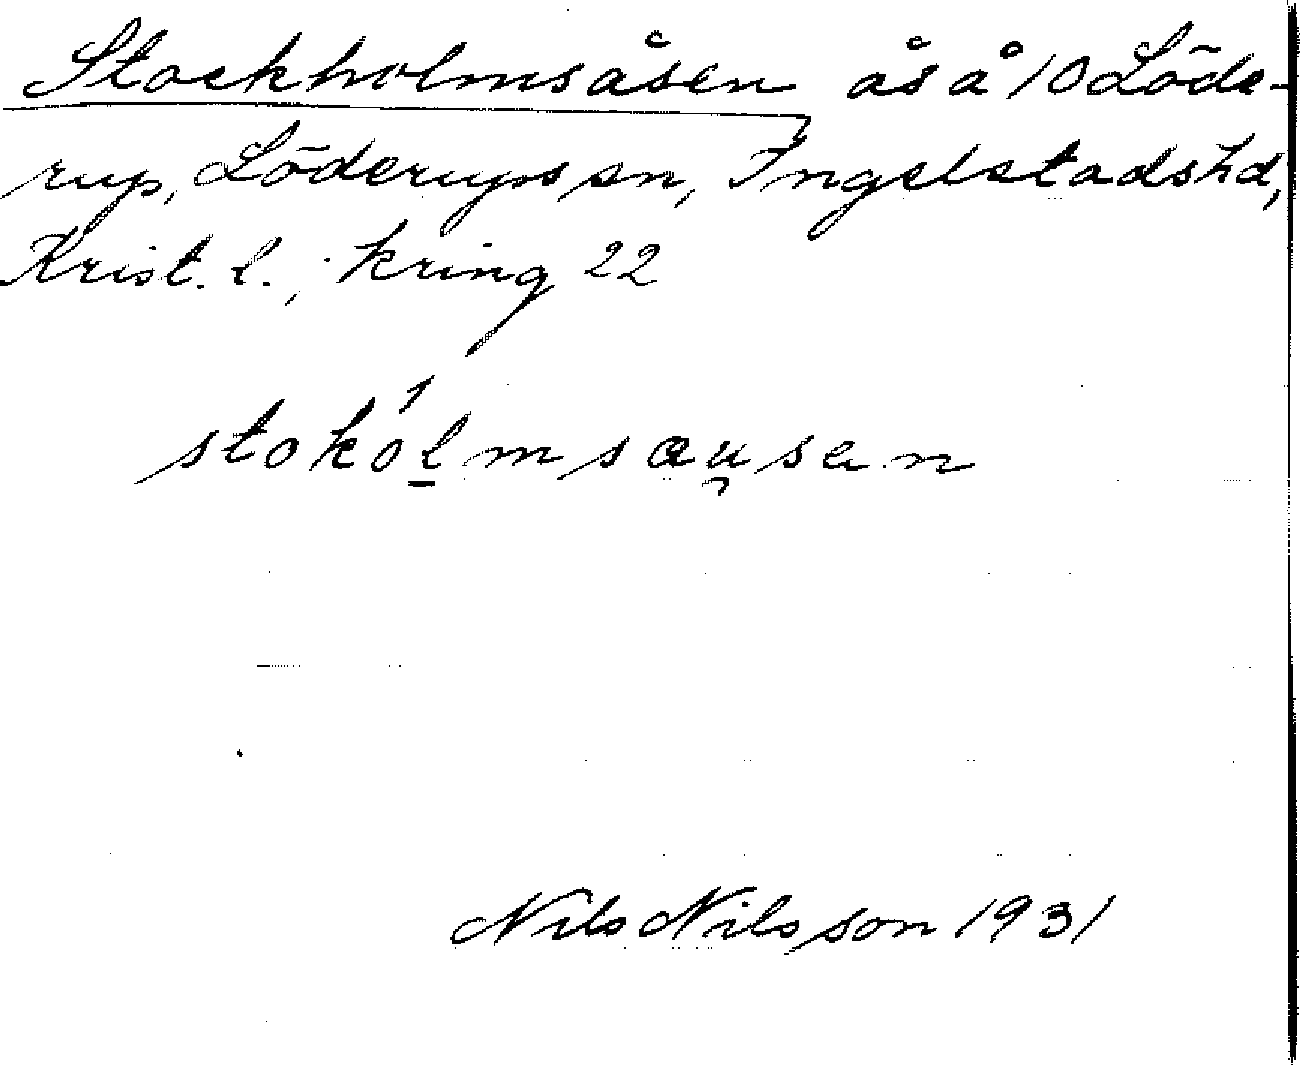 Stockholmsåsen ås å 10 Löde-
rup, Löderups sn, Ingelstads hd,
Krist. l., kring 22
stokólmsæu̯san
Nils Nilsson 1931